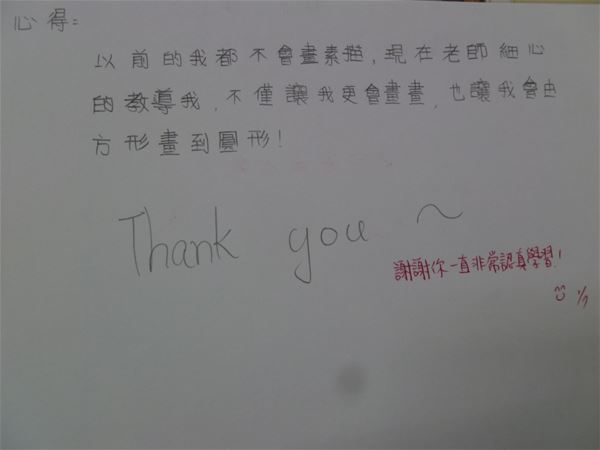 心得:
以前的我都不會畫素描,現在老師細心
的教導我,不僅讓我更會畫畫,也讓我會由
方形畫到圓形!
Thank you ~
謝謝你一直非常認真學習!
1/7